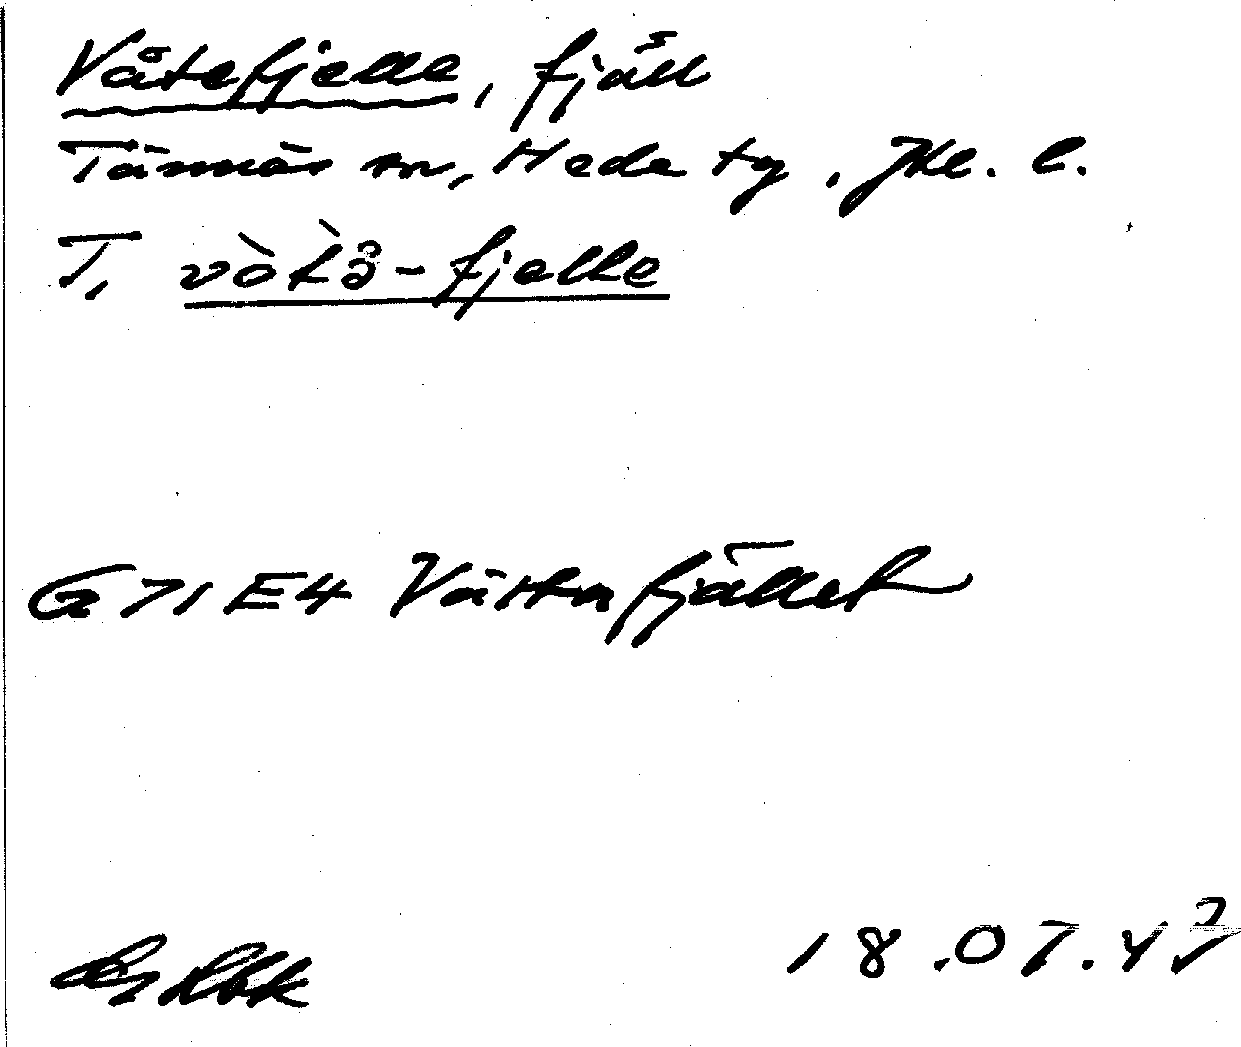 Våtefjelle, fjäll
Tännäs sn, Hede tg, Jtl. l.
T, vòt̀å-fjelle
G 71 E4 Våttafjället
18.07.47